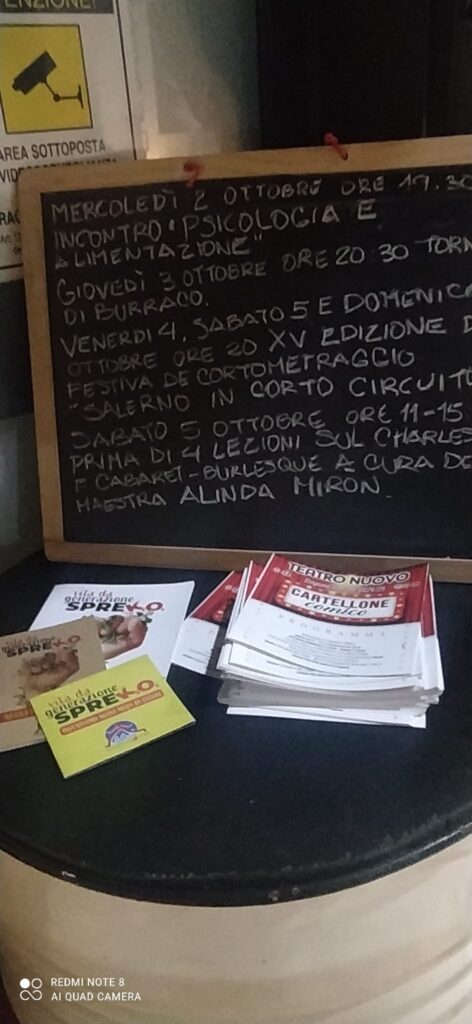 ENZIONE!
AREA SOTTOPOSTA
MERCOLEDÌ 2 OTTOBRE ORE 19.30
INCONTRO "PSICOLOGIA E
ALIMENTAZIONE"
GIOVEDÌ 3 OTTOBRE ORE 20:30 TORN
DI BURRACO.
VENERDI 4, SABATO 5 E DOMENICA
OTTOBRE ORE 20 XV EDIZIONE D
FESTIVA DE CORTOMETRAGGIO
"SALERNO IN CORTO CIRCUITO
SABATO 5 OTTOBRE ORE 11-15
PRIMA DI 4 LEZIONI SUL CHARLES
E CABARET-BURLESQUE A CURA DE
MAESTRA ALINDA MIRON.
vita da
generazione
SPREKO.
vita da
generazione
SPREKO.
vita da
generazione
SPREKO.
TEATRO NUOVO
CARTELLONE
comico
PROGRAMMA
REDMI NOTE 8
AI QUAD CAMERA